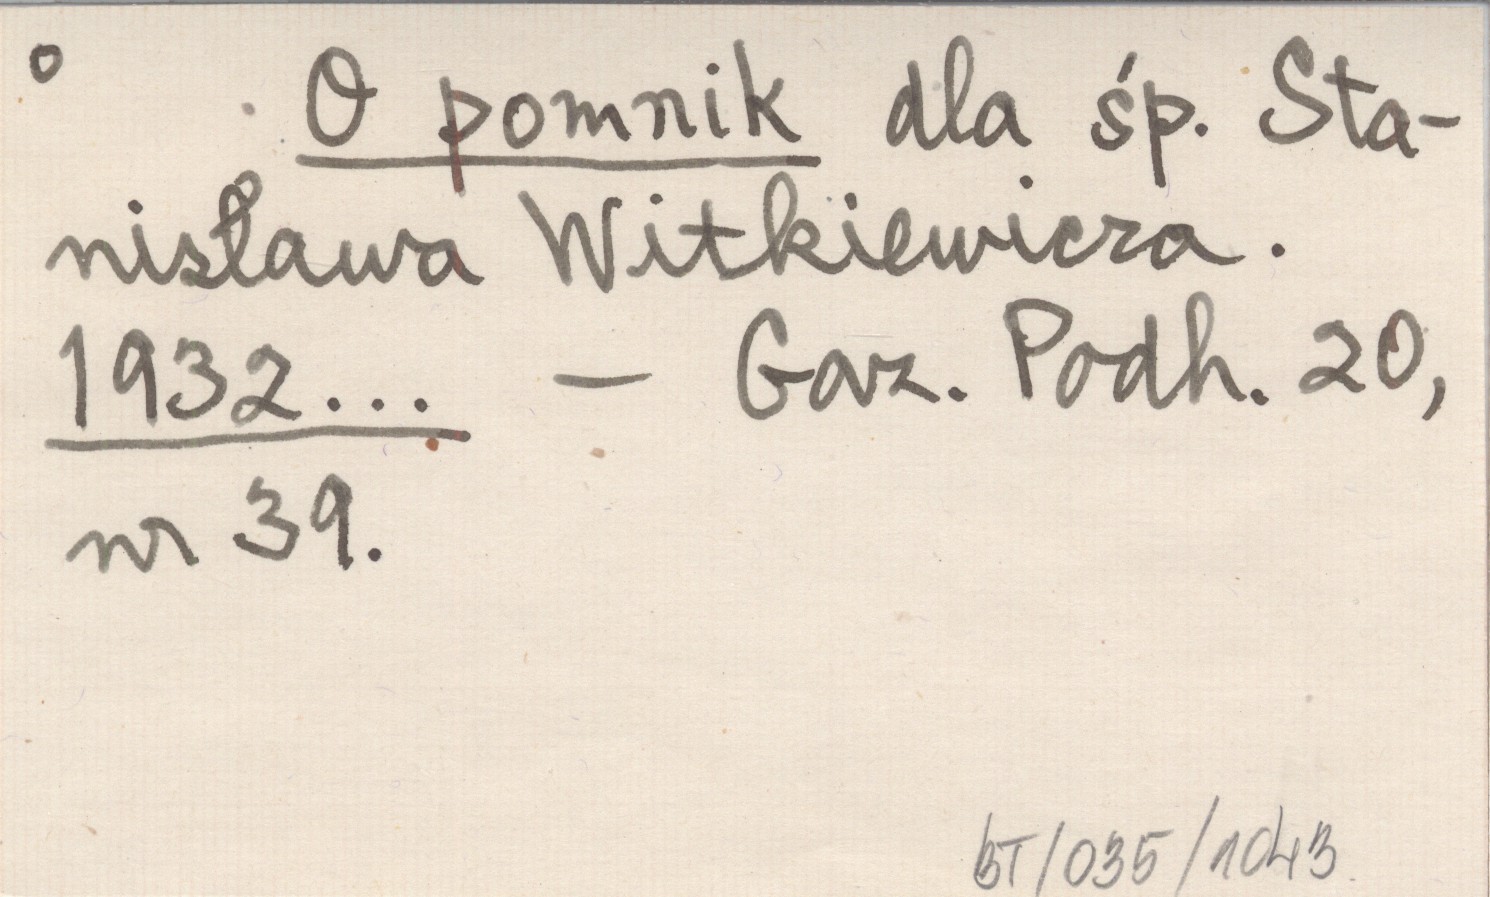 o O pomnik dla śp. Sta-
nisława Witkiewicza.
1932... — Gaz. Podh. 20,
nr 39.
BT/035/1043